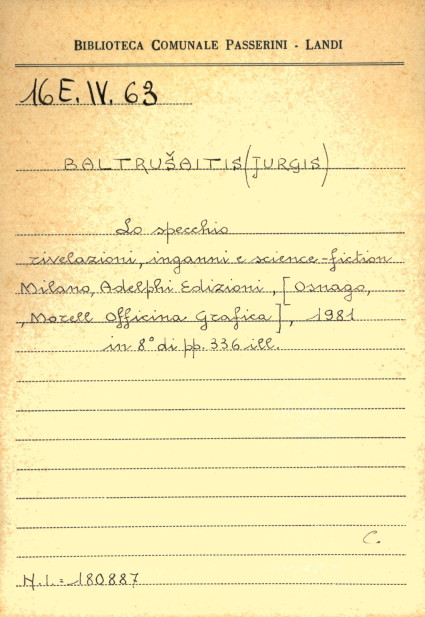 BIBLIOTECA COMUNALE PASSERINI - LANDI
16 E. IV. 63
BALTRUŠAITIS (JURGIS)
Lo specchio
rivelazioni, inganni e science-fiction
Milano, Adelphi Edizioni, [Osnago,
, Morell Officina Grafica], 1981
in 8° di pp. 336 ill.
C.
N.I.= 180887